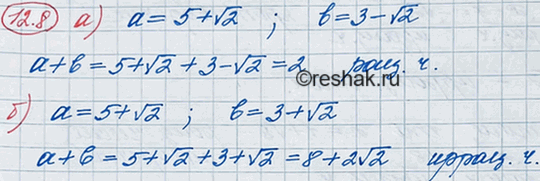 12.8 а) a = 5+√2 ; b = 3-√2
a+b = 5+√2 + 3-√2 = 2 рац. ч.
©reshak.ru
б) a = 5+√2 ; b = 3+√2
a+b = 5+√2+3+√2 = 8+2√2 иррац. ч.